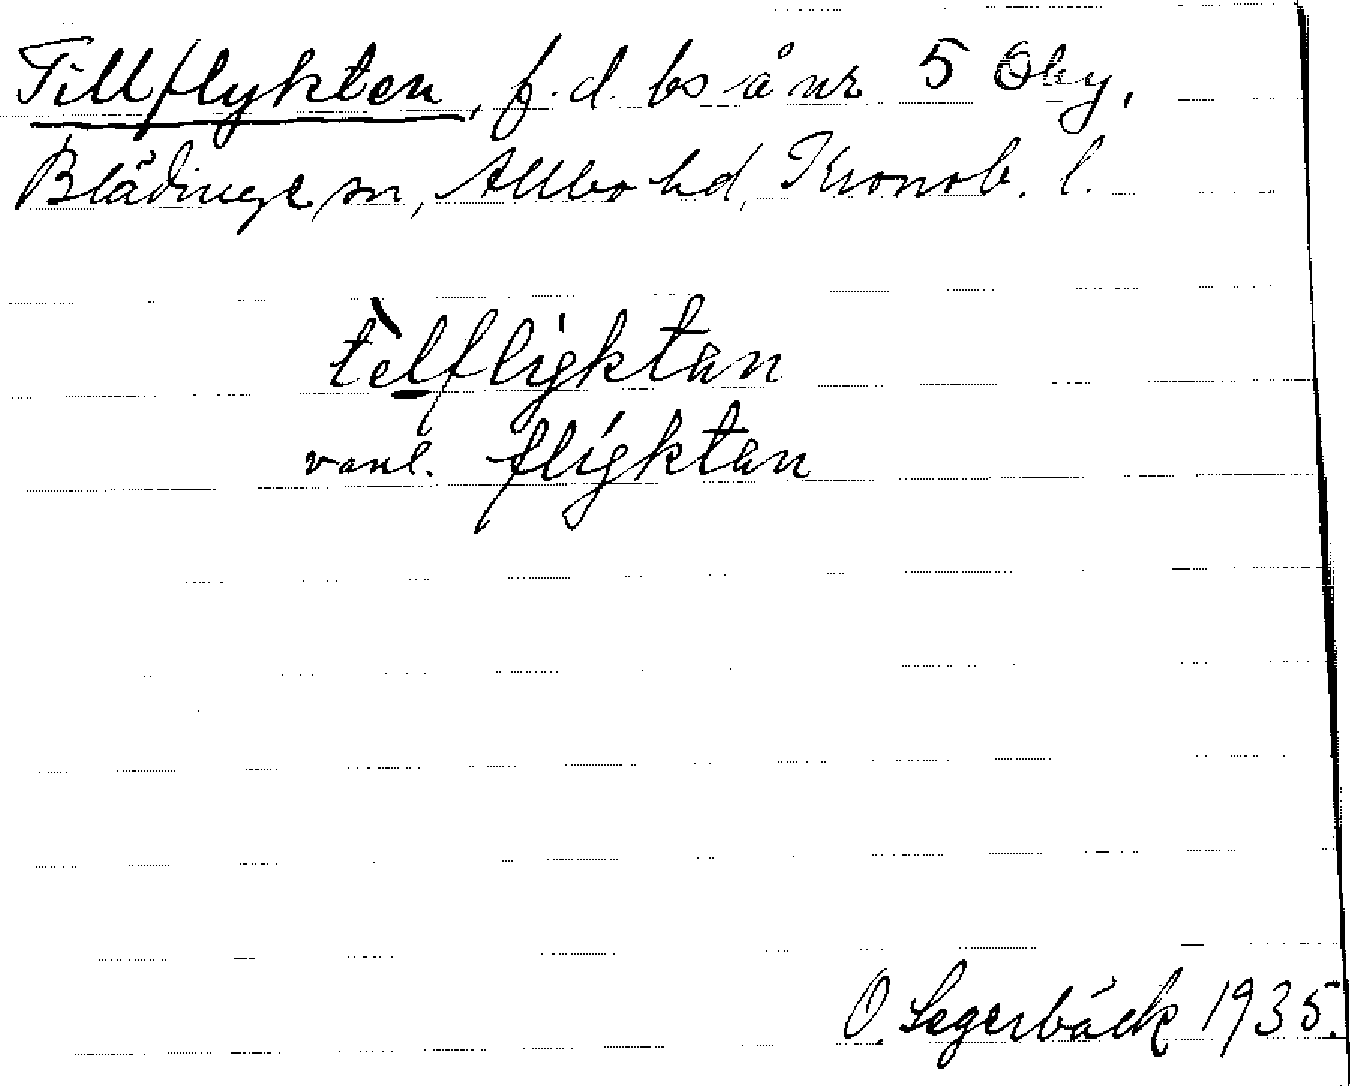 Tillflykten, f.d. bs å nr 5 Oby,
Blädinge sn, Allbo hd, Kronob. l.
telfligktan
vanl. fligktan
O. Segerbäck 1935.